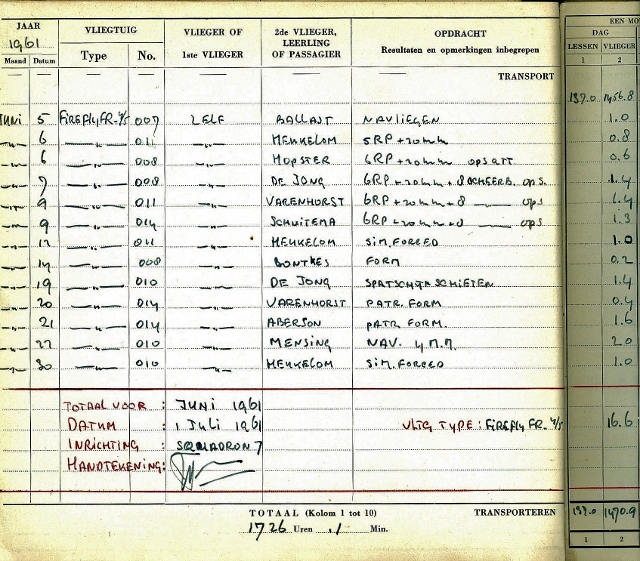 JAAR 1961 VLIEGTUIG VLIEGER OF 1ste VLIEGER 2de VLIEGER, LEERLING OF PASSAGIER OPDRACHT Resultaten en opmerkingen inbegrepen EEN MO
DAG
Maand Datum Type No. LESSEN VLIEGER
1 2
TRANSPORT 139.0 1456.8
JUNI 5 FIREFLY FR. 4/5 007 ZELF BALLAST NAVLIEGEN 1.0
6 011 MEUKELOM 5RP + 20mm 0.8
6 008 HOPSTER 6RP + 20mm ops att 0.6
7 008 DE JONG 6RP + 20mm + 8 SCHEERB. ops. 1.4
9 011 VARENHORST 6RP + 20mm + 8 ops 1.4
9 014 SCHUITEMA 6RP + 20mm + 8 ops 1.3
12 011 MEUKELOM SIM. FORCED 1.0
14 008 BONTKES FORM 0.2
19 010 DE JONG SCHIETEN 1.4
20 014 VARENHORST PATR. FORM 0.4
21 014 ABERSON PATR. FORM. 1.6
22 010 MENSING NAV. 2.0
30 010 MEUKELOM SIM. FORCED 1.0
TOTAAL VOOR : JUNI 1961
DATUM : 1 JULI 1961 VLTG TYPE : FIREFLY FR. 4/5 16.6
INRICHTING : SQUADRON 7
HANDTEKENING:
TOTAAL (Kolom 1 tot 10) TRANSPORTEREN 139.0 1470.9
1726 Uren .1 Min. 1 2